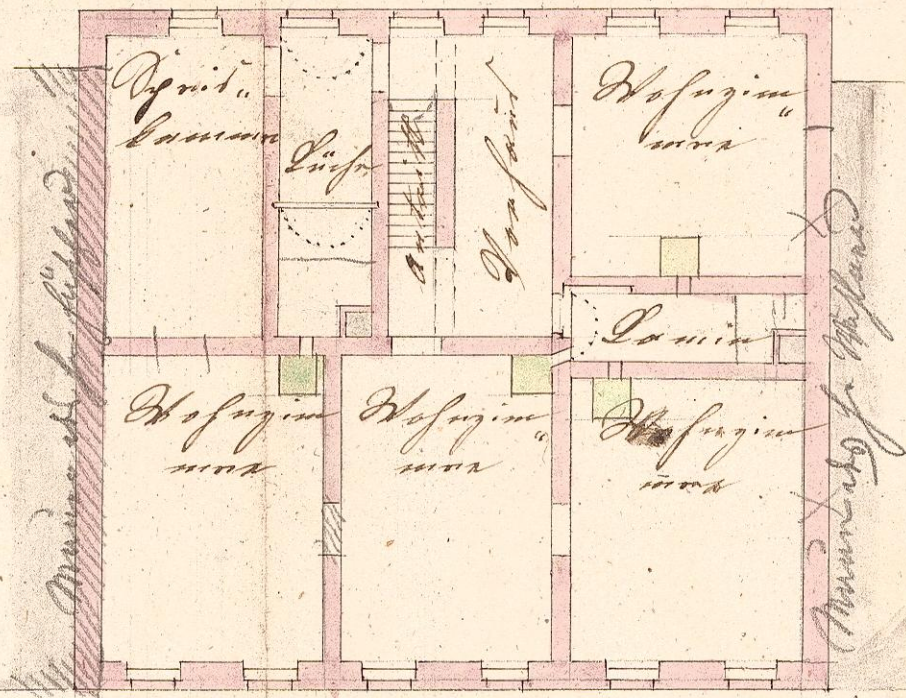 Speis„
kammer
Küche
Vorhaus
Wohnzim„
mer
Kamin
Wohnzim
mer
Wohnzim„
mer
Wohnzim
mer